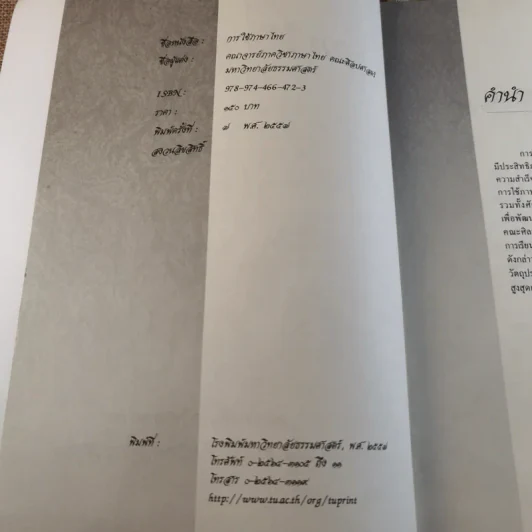 ชื่อหนังสือ : การใช้ภาษาไทย
ชื่อผู้แต่ง : คณาจารย์ภาควิชาภาษาไทย คณะศิลปศาสตร์
มหาวิทยาลัยธรรมศาสตร์
ISBN : 978-974-466-472-3
ราคา : ๑๕๐ บาท
พิมพ์ครั้งที่ : ๗ พ.ศ. ๒๕๕๗
สงวนลิขสิทธิ์
พิมพ์ที่ : โรงพิมพ์มหาวิทยาลัยธรรมศาสตร์, พ.ศ. ๒๕๕๗
โทรศัพท์ ๐-๒๕๖๔-๓๑๐๕ ถึง ๑๑
โทรสาร ๐-๒๕๖๔-๓๑๑๙
http://www.tu.ac.th/org/tuprint
คำนำ
การ
มีประสิทธิภ
ความสำเร็จ
การใช้ภาษ
รวมทั้งศั
เพื่อพัฒน
คณะศิล
การเรียน
ดังกล่าว
วัตถุปร
สูงสุดต